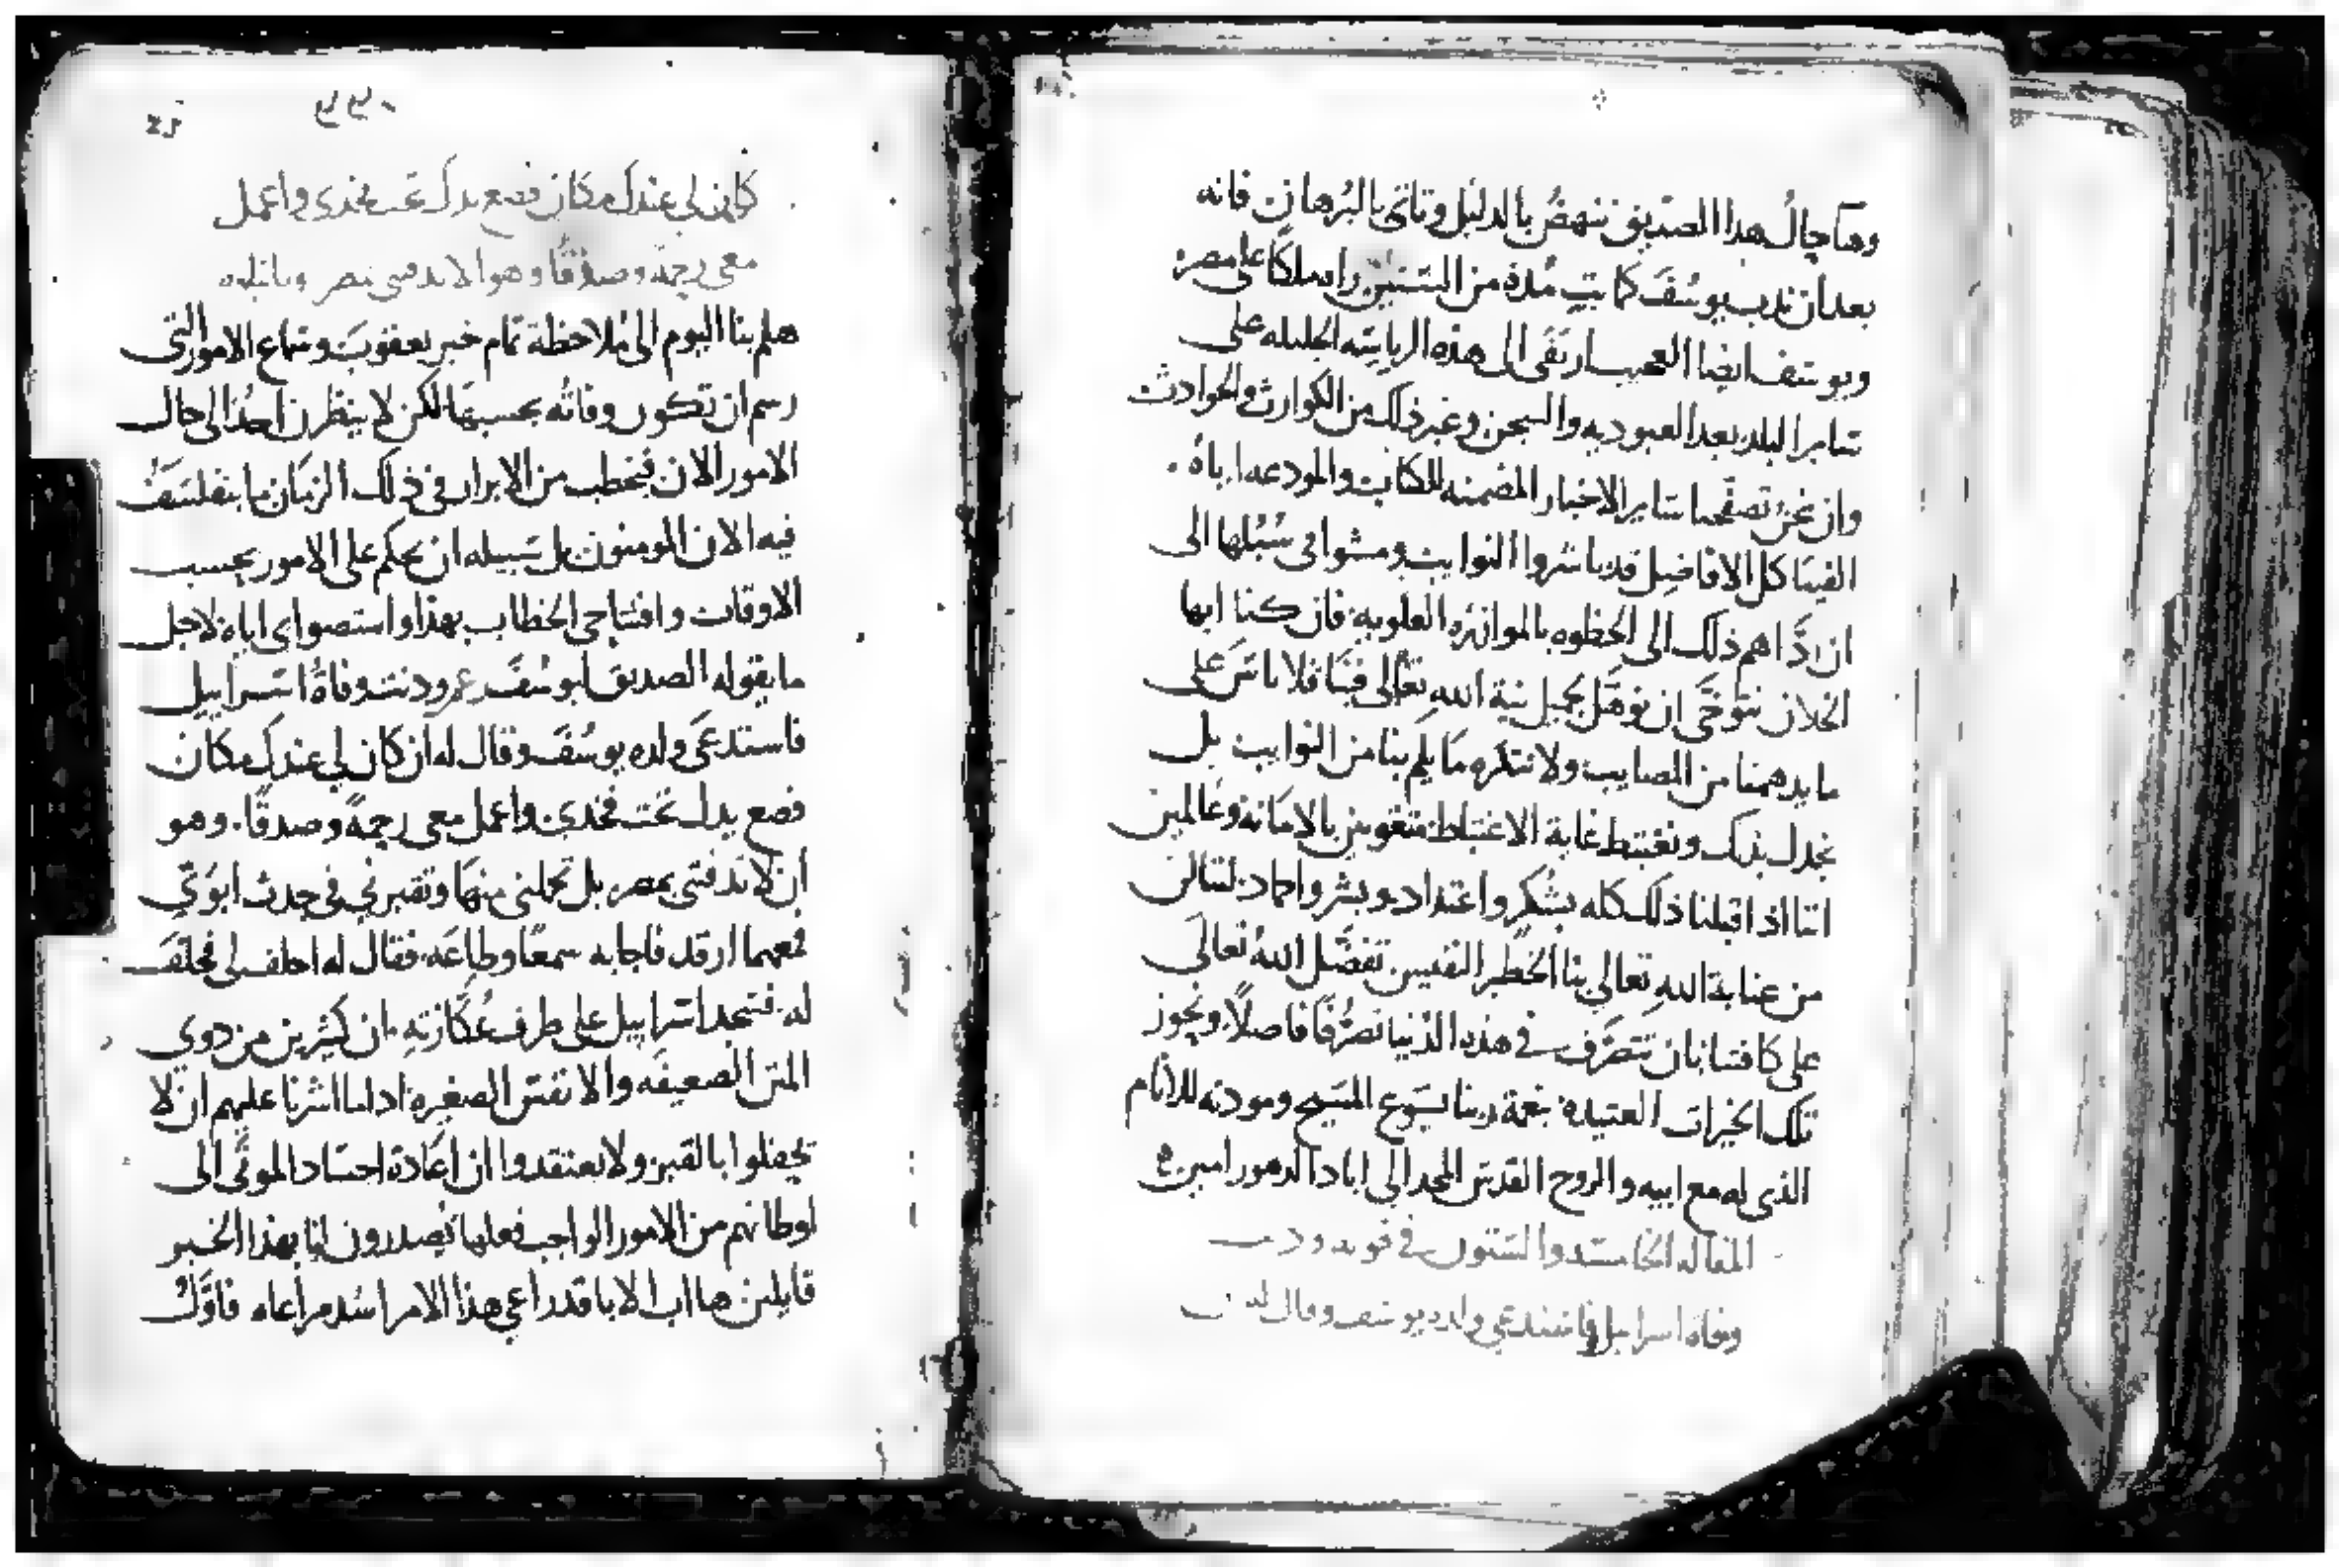 وهكا حال هدا الصديق تنهض بالدليل وتاتى بالبرهان فانه
بعد ان ندب يوسف كايب مدة من السنين راه ملكا على مصر
ويوسف ايضا العجيب ارتقى الى هذه الرياسه الجليله على
ساير البلد بعد العبوديه والسجن وغير ذلك من الكوارث والحوادث
وان نحن تصفحنا ساير الاخبار المضمنه للكتاب والمودعه اياه
الفينا كل الافاضل قد باشروا النوايب ومشوا فى سبلها الى
ان اداهم ذلك الى الحظوه بالموازره العلويه فان كنا ايها
الخلان نتوخى ان نوهل بجميل نية الله تعالى فينا فلا ناس على
ما يدهمنا من المصايب ولا نتكره ما يلم بنا من النوايب بل
نجدل بذلك ونغتبط غاية الاغتباط متقويين بالامانه وعالمين
اننا اذا قبلنا ذلك كله بشكر واعتداد وبشر واحماد لننالن
من عناية الله تعالى بنا الخطر النفيس تفضل الله تعالى
على كافتنا بان نتصرف فى هذه الدنيا تصرفا فاضلا ونحوز
تلك الخيرات العتيده بنعمة ربنا يسوع المسيح ومودته للانام
الذى له مع ابيه والروح القدس المجد الى اباد الدهور امين
المقاله الخامسه والستون فى
وفاه اسراييل فاستدعي ولده يوسف وقال له
كان لي عندك مكان فضع يدك تحت فخدي واعمل
معى رحمة وصدقا وهو الا تدفنى بمصر وما يتلوه
هلم بنا اليوم الى ملاحظة تمام خبر يعقوب وسماع الامور التى
رسم ان تكون وفاته بحسبها لكن لا ينظرن احدا الى حال
الامور الان فيخطب من الابرار فى ذلك الزمان ما يتفلسف
فيه الان المومنون بل سبيله ان يحكم على الامور بحسب
الاوقات وافتتاحى الخطاب بهذا واستصوابى اياه لاجل
ما يقوله الصديق ليوسف ودنت وفاة اسراييل
فاستدعى ولده يوسف وقال له ان كان لي عندك مكان
فضع يدك تحت فخدى واعمل معى رحمة وصدقا وهو
ان لا تدفنى بمصر بل تحملنى منها وتقبرنى فى جدث ابوتي
فمعهما ارقد فاجابه سمعا وطاعه فقال له احلف لى فحلف
له فسجد اسراييل على طرف عكازته ان كثيرين من دوى
المنن الضعيفه والانفس الصغيره ادا ما اشرنا عليهم ان لا
يحفلوا بالقبر ولا يعتقدوا ان اعادة اجساد الموتى الى
اوطانهم من الامور الواجب فعلها يصدرون لنا بهذا الخبر
قايلين ها اب الابا قد راعى هذا الامر اشد مراعاه فاول